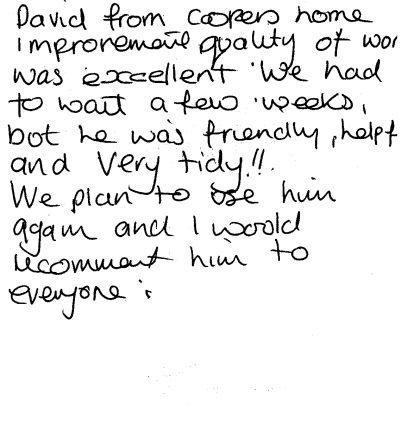 David from Coopers home
improvement quality of wor
was excellent. We had
to wait a few weeks,
but he was friendly, helpf
and very tidy!!.
We plan to use him
again and I would
recomment him to
everyone.